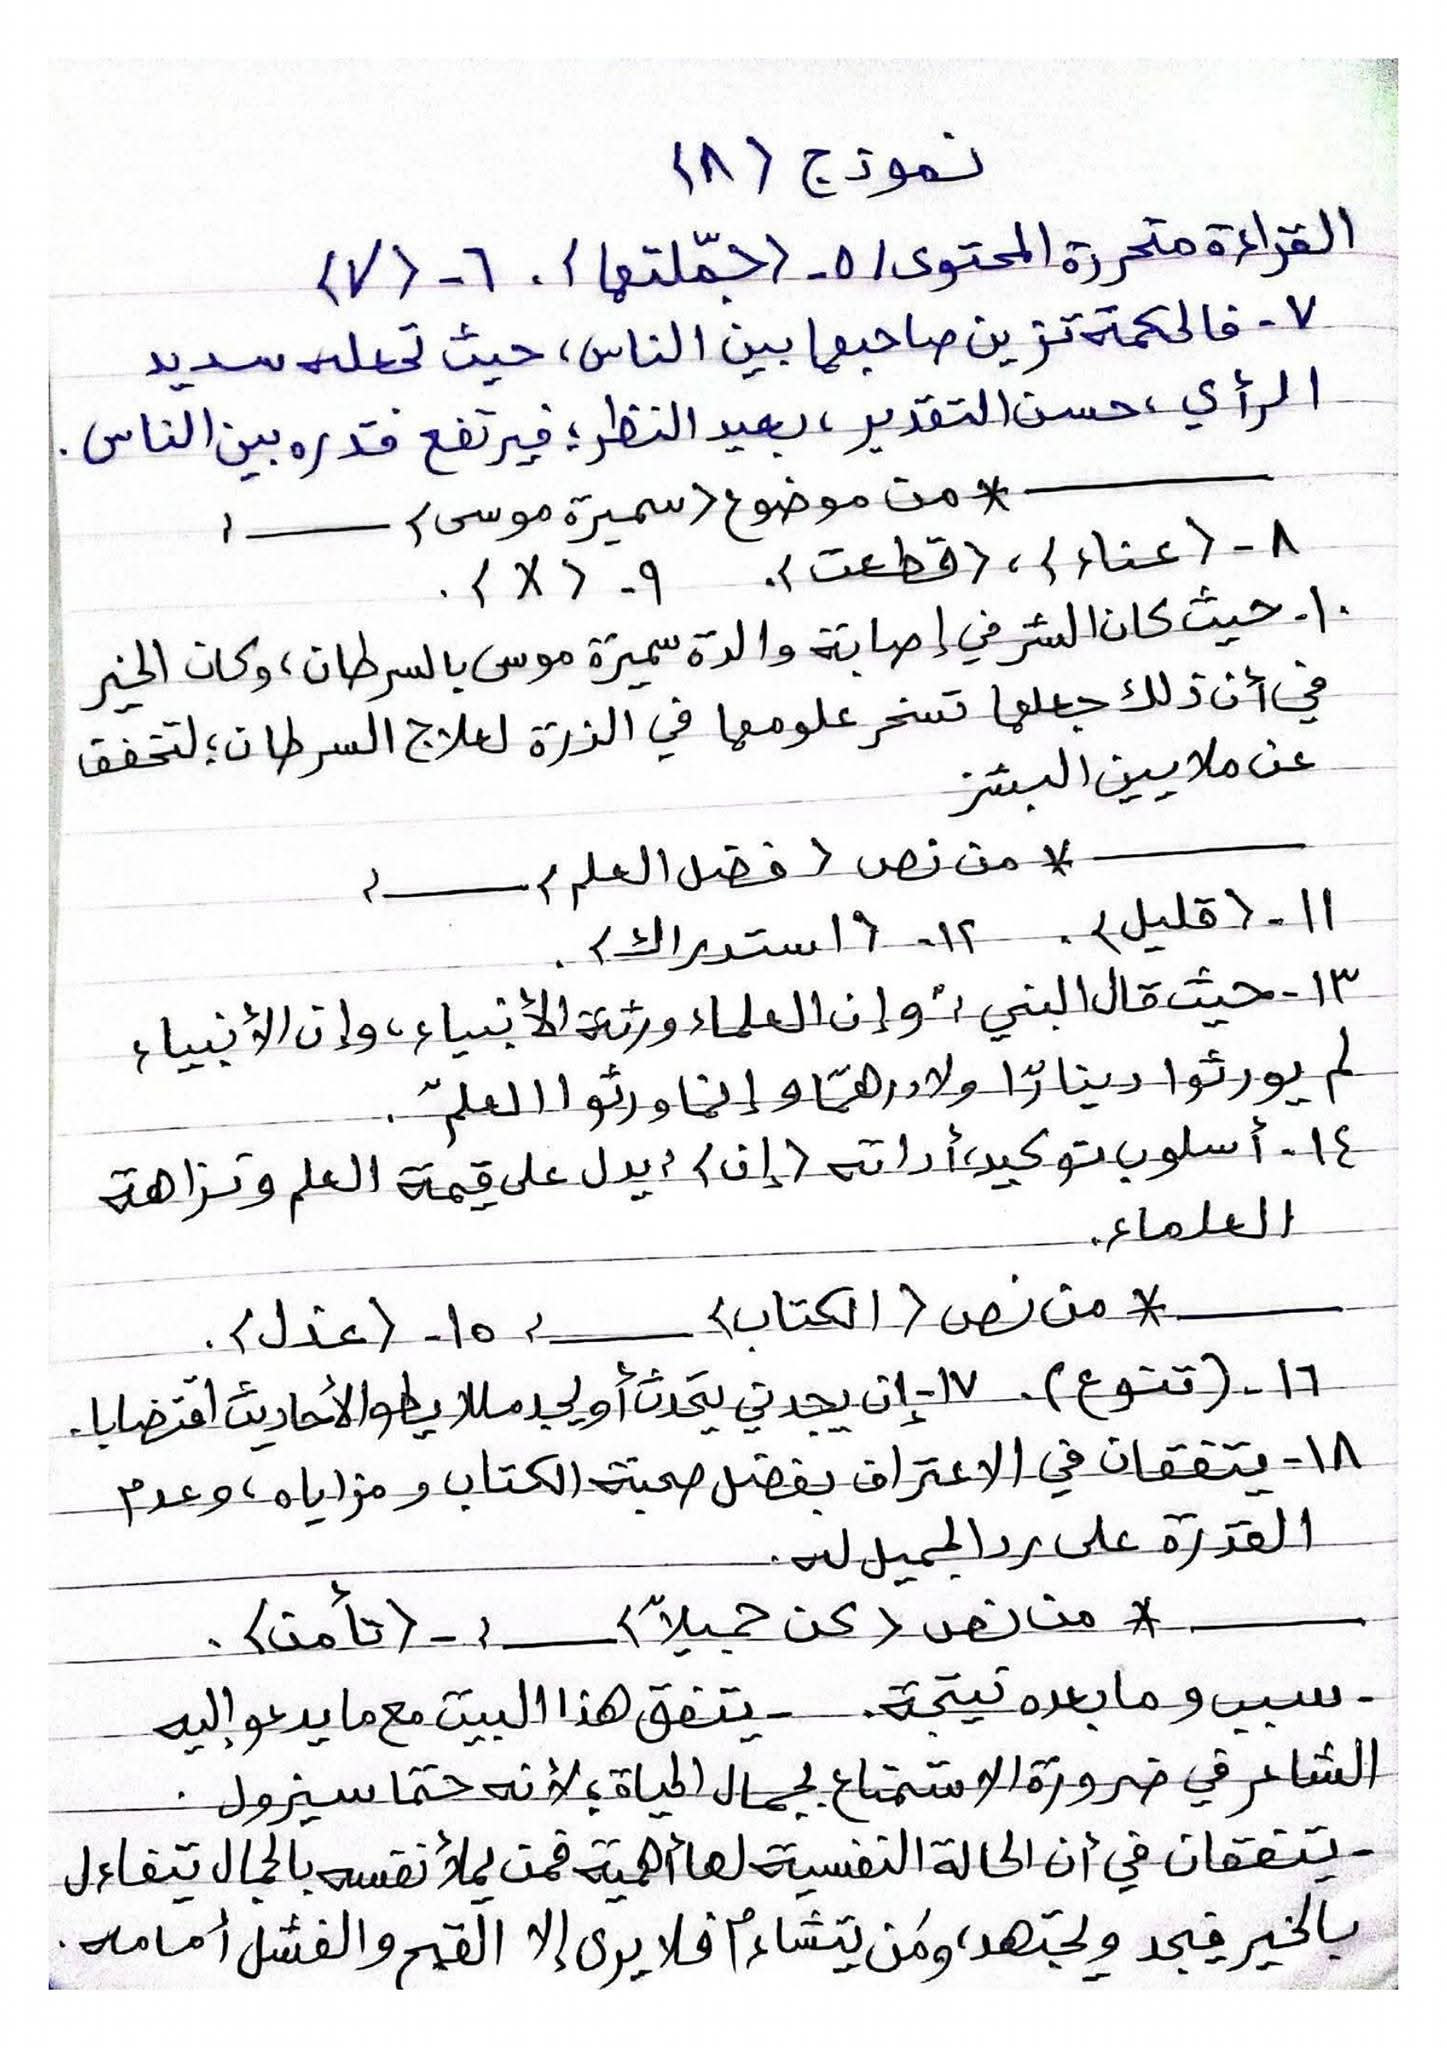 نموذج (٨)
القراءة متحررة المحتوى: ٥- (جمّلتها). ٦- (√)
٧- فالحكمة تزين صاحبها بين الناس، حيث تجعله سديد
الرأي، حسن التقدير، بعيد النظر؛ فيرتفع قدره بين الناس.
* من موضوع (سميرة موسى) :
٨- (عناء)، (قطعت). ٩- (X).
١٠- حيث كان الشر في إصابة والدة سميرة موسى بالسرطان، وكان الخير
في أن ذلك جعلها تسخر علومها في الذرة لعلاج السرطان؛ لتخفف
عن ملايين البشر
* من نص (فضل العلم) :
١١- (قليل). ١٢- (استدراك).
١٣- حيث قال النبي: "وإن العلماء ورثة الأنبياء، وإن الأنبياء
لم يورثوا دينارًا ولا درهمًا وإنما ورثوا العلم".
١٤- أسلوب توكيد، أداته (إن): يدل على قيمة العلم ونزاهة
العلماء.
* من نص (الكتاب) : ١٥- (عذل).
١٦- (تنوع). ١٧- إن يجدني يتحدث أو يجد مللا يطو الأحاديث اقتضابا.
١٨- يتفقان في الاعتراف بفضل صحبة الكتاب ومزاياه، وعدم
القدرة على رد الجميل له.
* من نص (كن جميلاً) : - (تأمن).
- سبب وما بعده نتيجة. - يتفق هذا البيت مع ما يدعو إليه
الشاعر في ضرورة الاستمتاع بجمال الحياة؛ لأنه حتما سيزول.
- يتفقان في أن الحالة النفسية لها أهمية فمن يملأ نفسه بالجمال يتفاءل
بالخير فيجد ويجتهد، ومَن يتشاءم فلا يرى إلا القبح والفشل أمامه.